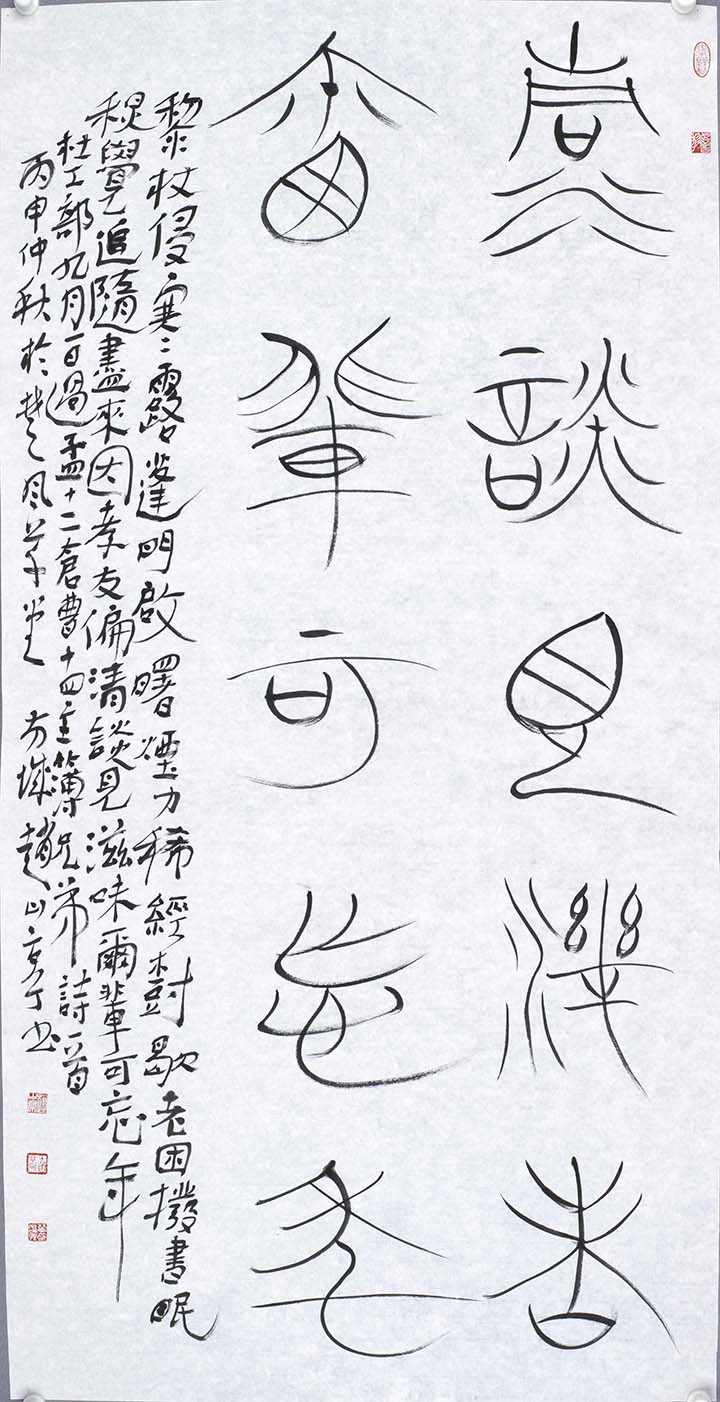 清談見滋味
爾輩可忘年
黎杖侵寒露蓬門啟曙煙力稀經樹歇老困撥書眠
秋覺追隨盡來因孝友偏清談見滋味爾輩可忘年
杜工部九月一日過孟十二倉曹十四主簿兄弟詩一首
丙申仲秋於楚風草堂 方城趙山亭書